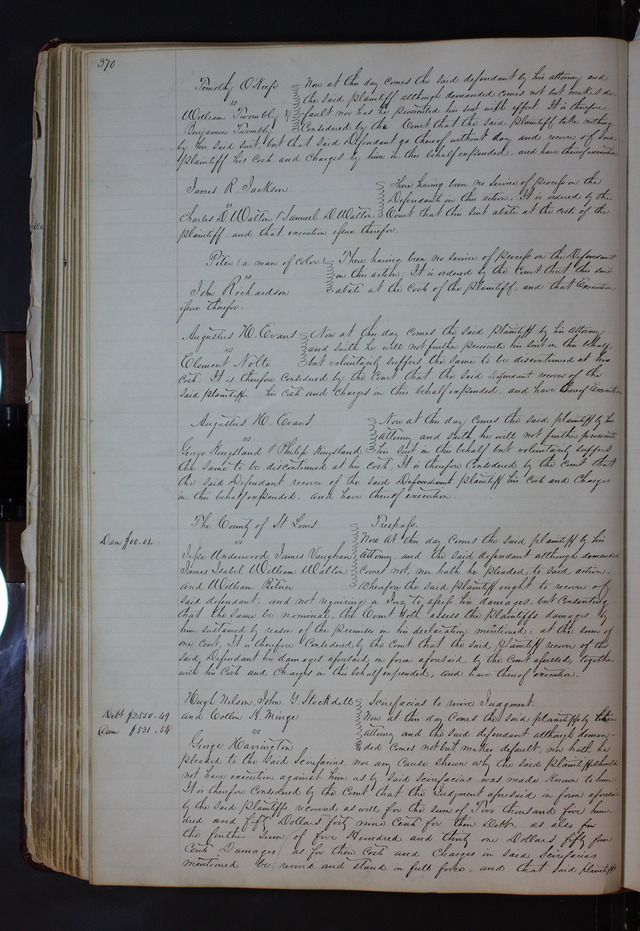 370
Timothy O Keefe } Now at this day comes the said defendant by his attorney and
vs } the said plaintiff although demanded comes not but makes de-
William Twombly & } fault nor has he prosecuted his suit with effect It is therefore
Benjamin Twombly } Considered by the Court that the said plaintiff take nothing
by his said suit, but that said Defendant go thereof without day and recover of said
plaintiff his Costs and Charges by him in this behalf expended, and have thereof execution
James R. Jackson } There having been no service of process on the
vs } Defendants in this action. It is ordered by the
Charles D. Walton & Samuel D. Walton } Court that this suit abate at the costs of the
plaintiff and that execution issue therefor.
Peter (a man of color) } There having been no service of process on the Defendant
vs } in this action; It is ordered by the Court that this suit
John Richardson } abate at the Costs of the plaintiff, and that Execution
issue therefor.
Augustus H. Evans } Now at this day comes the said plaintiff by his attorney
vs } and saith he will not further prosecute his suit in this behalf
Clement Nolte } but voluntarily suffers the same to be discontinued at his
Cost. It is therefore Considered by the Court that the said defendant recover of the
said plaintiff his Costs and Charges in this behalf expended, and have thereof Execution
Augustus H. Evans } Now at this day comes the said plaintiff by his
vs } Attorney and saith he will not further prosecute
George Kingsland & Philip Kingsland } his suit in this behalf but voluntarily suffers
the same to be discontinued at his cost. It is therefore Considered by the Court that
the said Defendant recover of the said Defendant plaintiff his Costs and Charges
in this behalf expended, and have thereof execution.
The County of St Louis } Trespass.
Dam $00.01 vs } Now at this day comes the said plaintiff by his
Jesse Underwood, James Vaughan } Attorney and the said defendant although demanded
James Isabel William Walton } comes not, nor hath he pleaded to said action,
and William Ritner } Wherefore the said plaintiff ought to recover of
said defendant, and not requiring a Jury to assess his damages, but Consenting
that the same be nominal, the Court doth assess the plaintiffs damages by
him sustained by reason of the premises in his declaration mentioned, at the sum of
one Cent, It is therefore Considered by the Court that the said plaintiff recover of the
said, Defendant his damages aforesaid in form aforesaid by the Court assessed, together
with his Costs and Charges in this behalf expended, and have thereof execution.
Hugh Nelson, John G. Stockdell } Scirefacias to revive Judgment.
Debt $2550.49 and Collin H. Minge } Now at this day comes the said plaintiffs by their
Dam $531.54 vs } Attorney and the said defendant although deman-
George Harrington } ded comes not but makes default, nor hath he
pleaded to the said Scirefacias, nor any Cause shewn why the said plaintiff should
not have execution against him as by said scirefacias was made known to him
It is therefore Considered by the Court that the Judgment aforesaid in form aforesaid
by the said plaintiffs recovered as well for the sum of Two thousand five hun-
dred and fifty Dollars forty nine Cents for their Debt as also for
the further sum of five Hundred and thirty one Dollars fifty four
Cents Damages as for their Costs and Charges in said Scirefacias
mentioned be revived and stand in full force, and that said plaintiffs